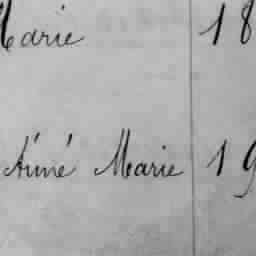 Marie 18
Aimé Marie 19